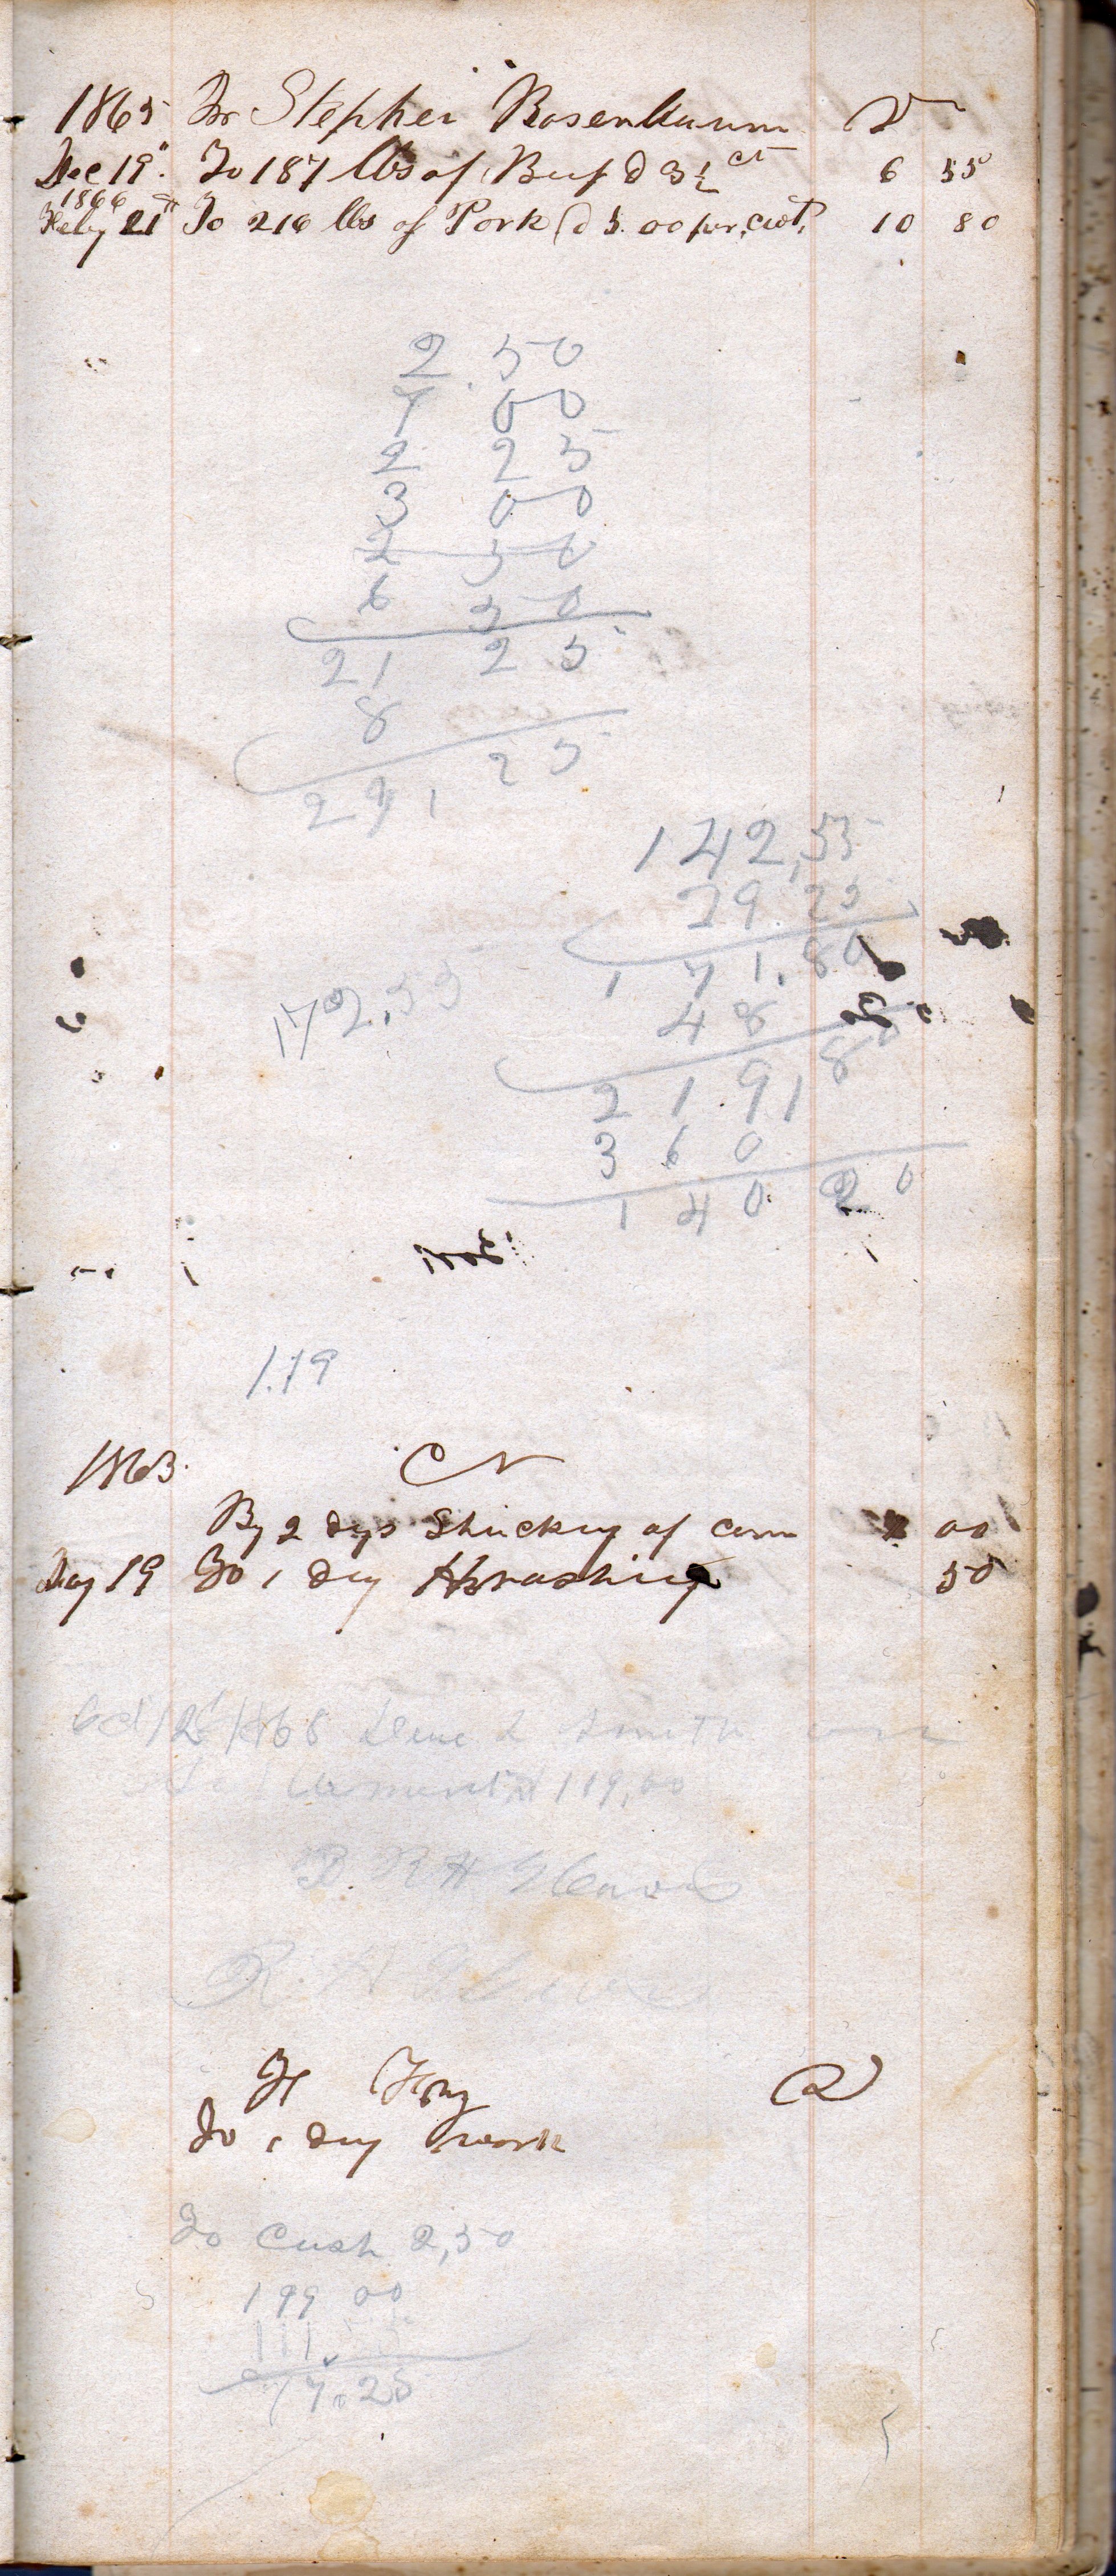 1865 Dr Stephen Rosenbaum Dr
Dec 19" To 187 lbs of Beef @ 3½ ct 6 55
1866
Feby 21st To 216 lbs of Pork @ 5.00 per, cwt, 10 80
2.50
7 00
2 25
3 00
2 50
6 50
21 25
8
29, 25
142,55
29.25
171.80
172,55
48
219 18
360
140 20
1.19
1863. Cr
By 2 dys Shucking of corn 00
May 19 To 1 day Thrashing 50
Smith
119,00
R H
R H
H
To 1 day work
To Cash 2,50
199 00
111.
17.25